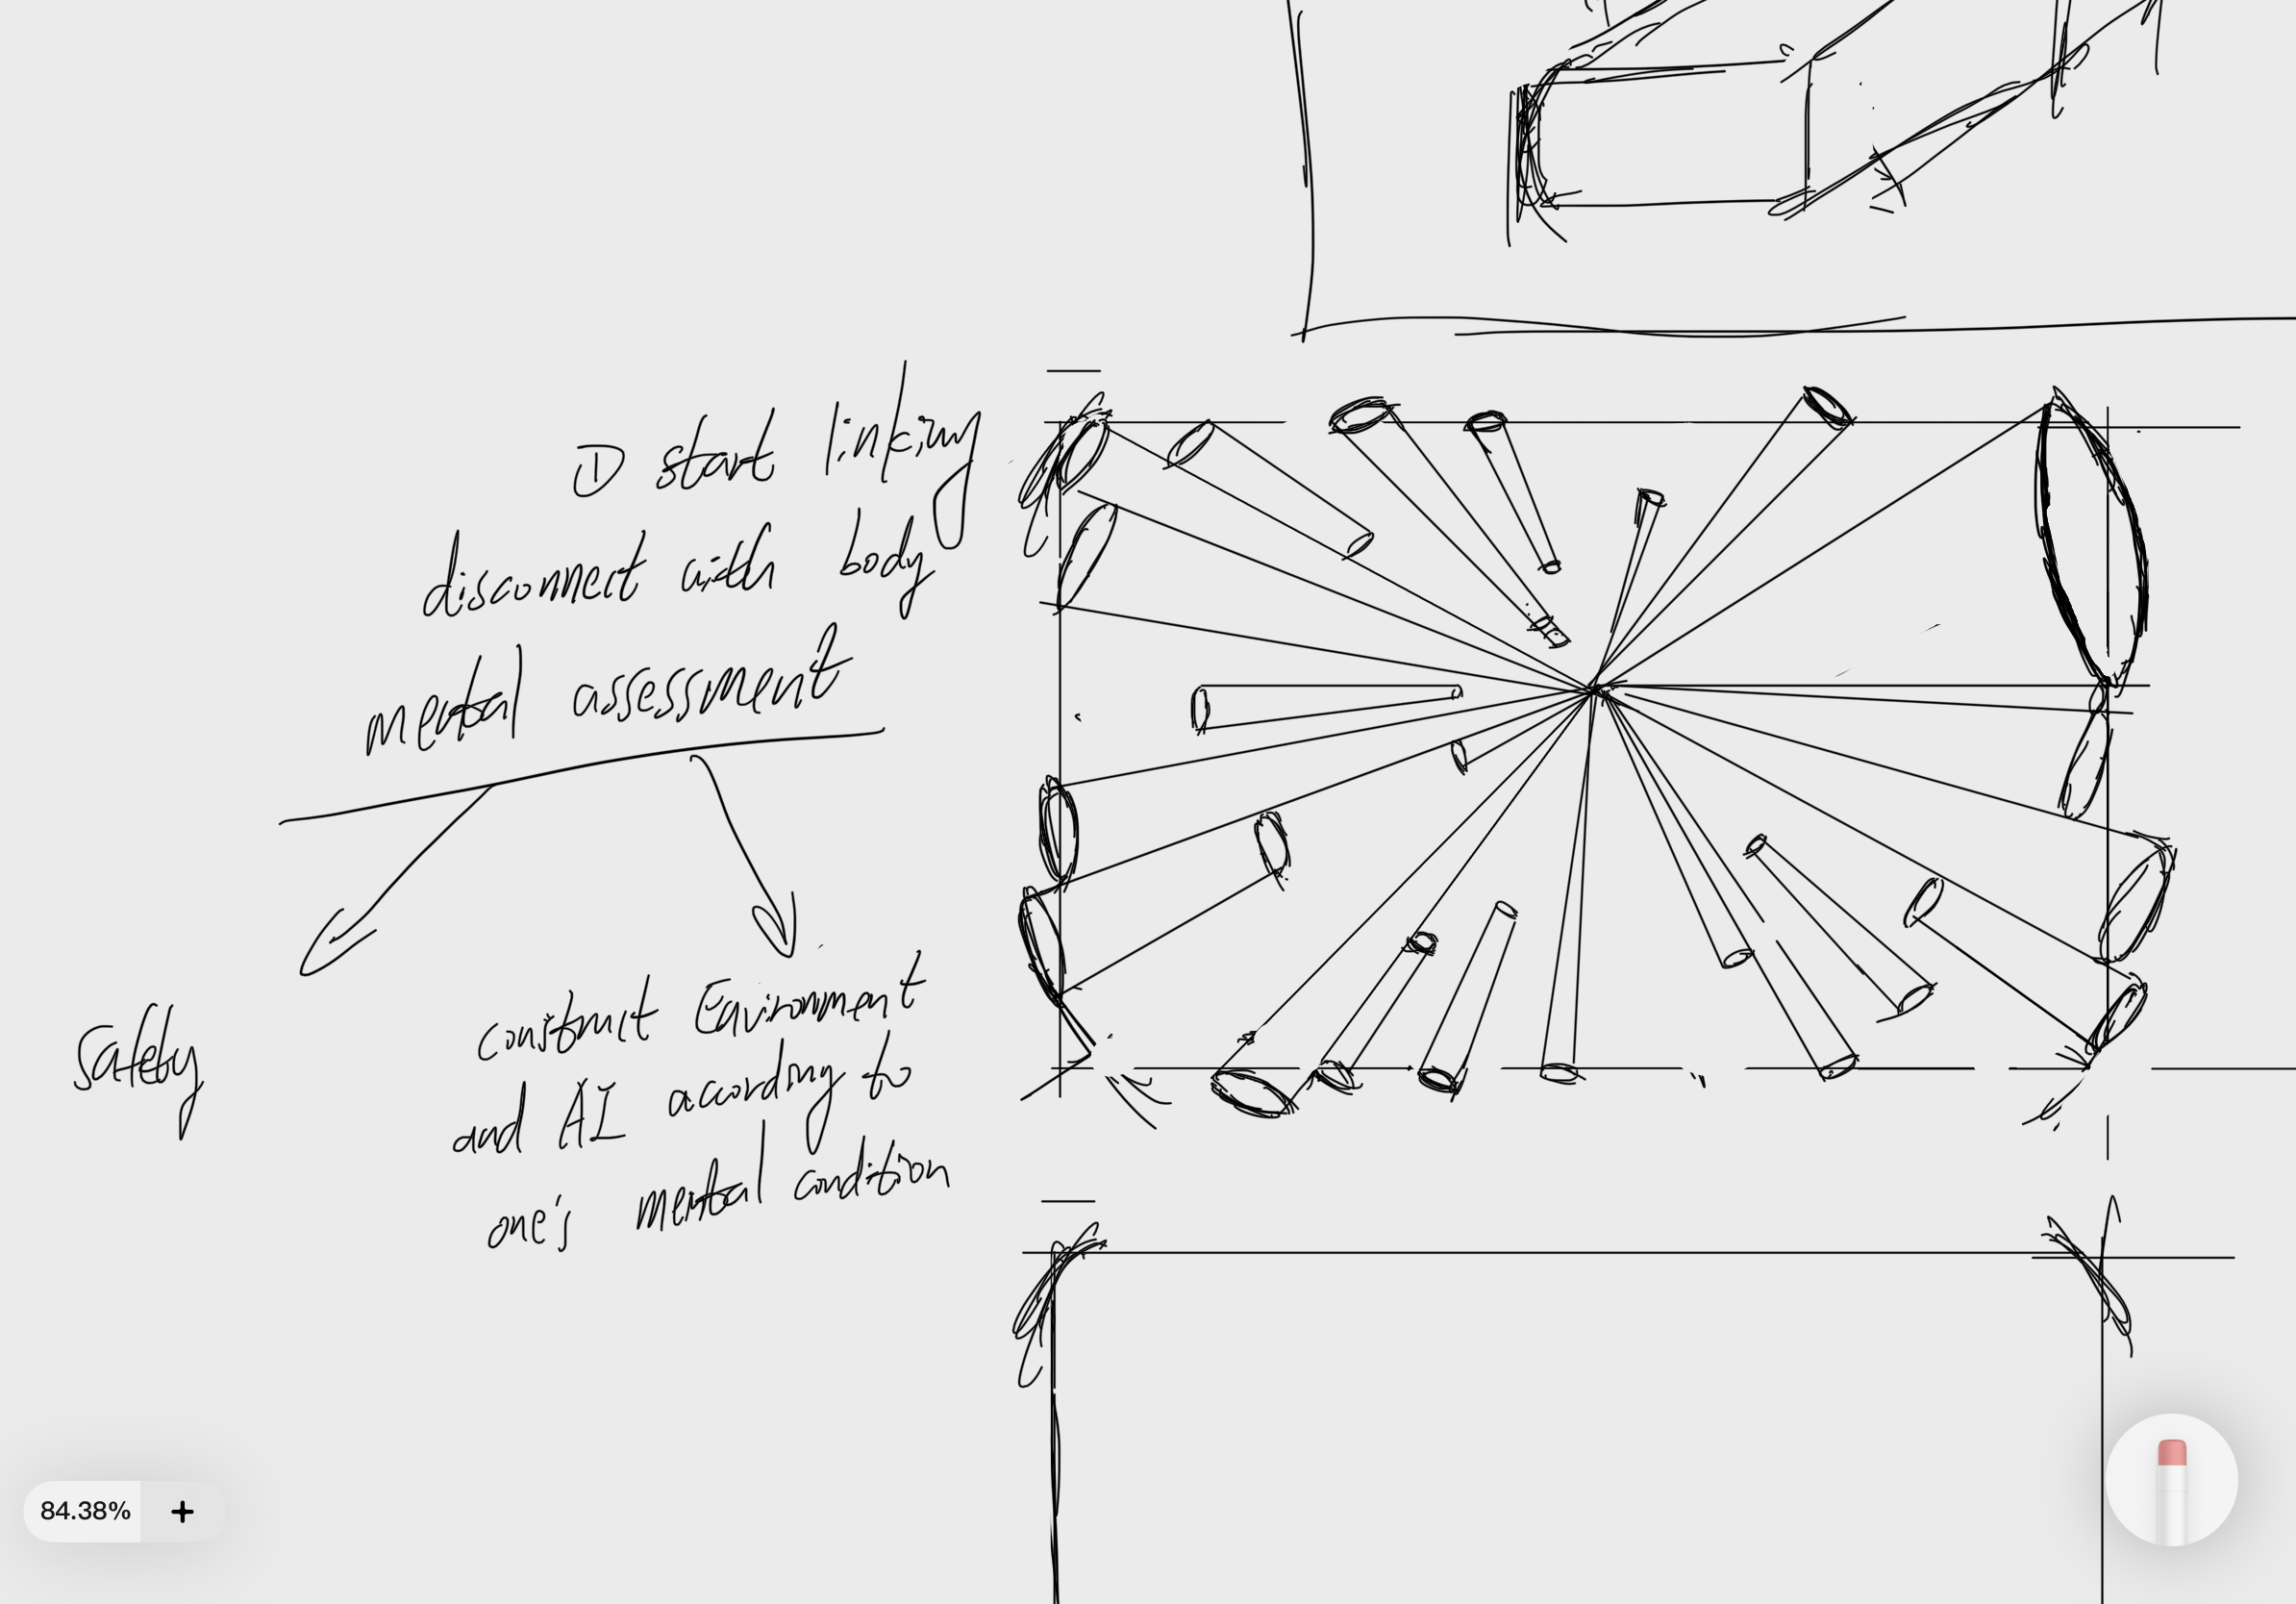 ① start linking
disconnect with body
mental assessment
Safety
construct Environment
and AI acording to
one's mental condition
84.38% +